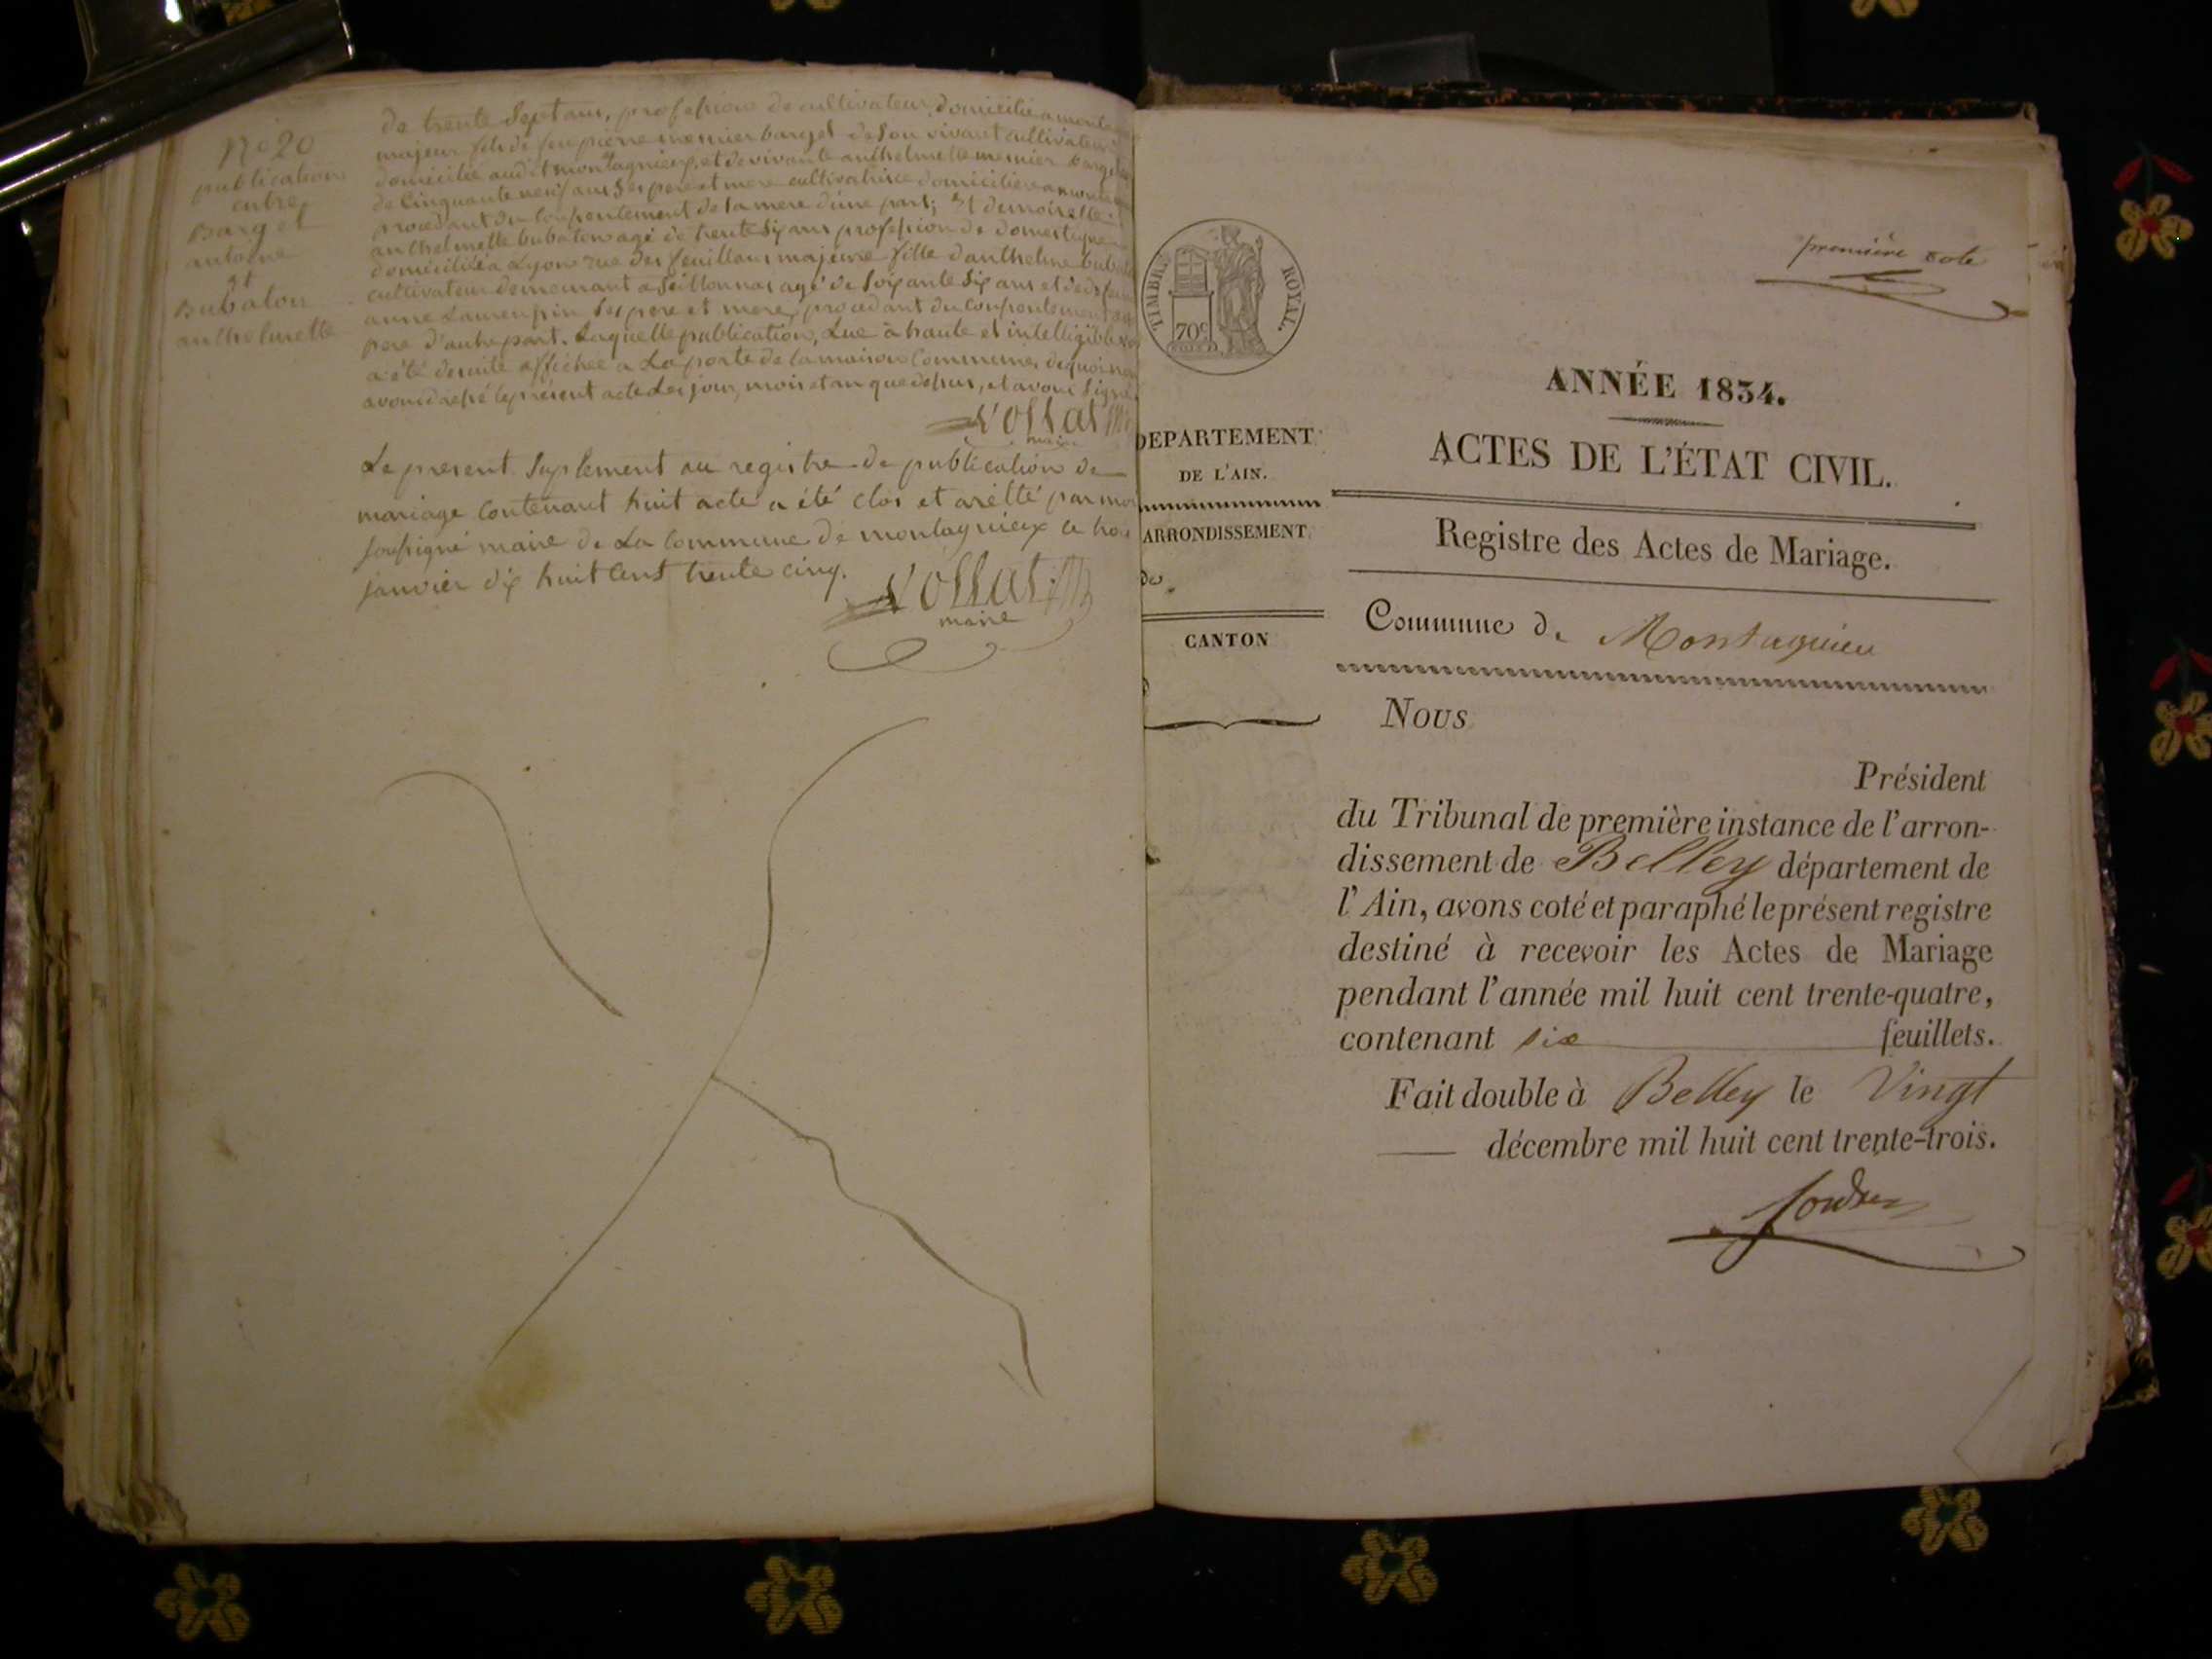 No 20
publication
entre
Barget
antoine
et
Bubaton
anthelmette
de trente Sept ans, profession de cultivateur, domicilié a
majeur fils de feu pierre mermier barget de Son vivant cultivateur
domicilié audit montagnieux, et de vivante anthelmette mermier barget
de Cinquante neuf ans Ses pere et mere cultivatrice domiciliée a
procedant du Consentement de sa mere d'une part; Et demoiselle
anthelmette bubaton agé de trente Six ans profession de domestique
domiciliée a Lyon rue des feuillans majeure fille d'anthelme
cultivateur demeurant a Seillonnas agé de Soixante Six ans et de
anne Laurenpin Ses pere et mere, procedant du Consentement
pere d'autre part. Laquelle publication, Lue à haute et intelligible
a été desuite affichée a La porte de la maison Commune, dequoi
avons drésé le présent acte Les jour, mois et an que desus, et avons Signé
maire
Le present Suplement au registre de publication de
mariage Contenant huit acte a été clos et arêtté par
soussigné maire de La Commune de montagnieux ce
janvier dix huit Cent trente cinq.
maire
première cote
TIMBRE ROYAL.
70c
ANNÉE 1834.
ACTES DE L'ÉTAT CIVIL.
DEPARTEMENT
DE L'AIN.
ARRONDISSEMENT
de
CANTON
Registre des Actes de Mariage.
Commune de Montagnieu
Nous
Président
du Tribunal de première instance de l'arron-
dissement de Belley département de
l'Ain, avons coté et paraphé le présent registre
destiné à recevoir les Actes de Mariage
pendant l'année mil huit cent trente-quatre,
contenant six feuillets.
Fait double à Belley le Vingt
décembre mil huit cent trente-trois.